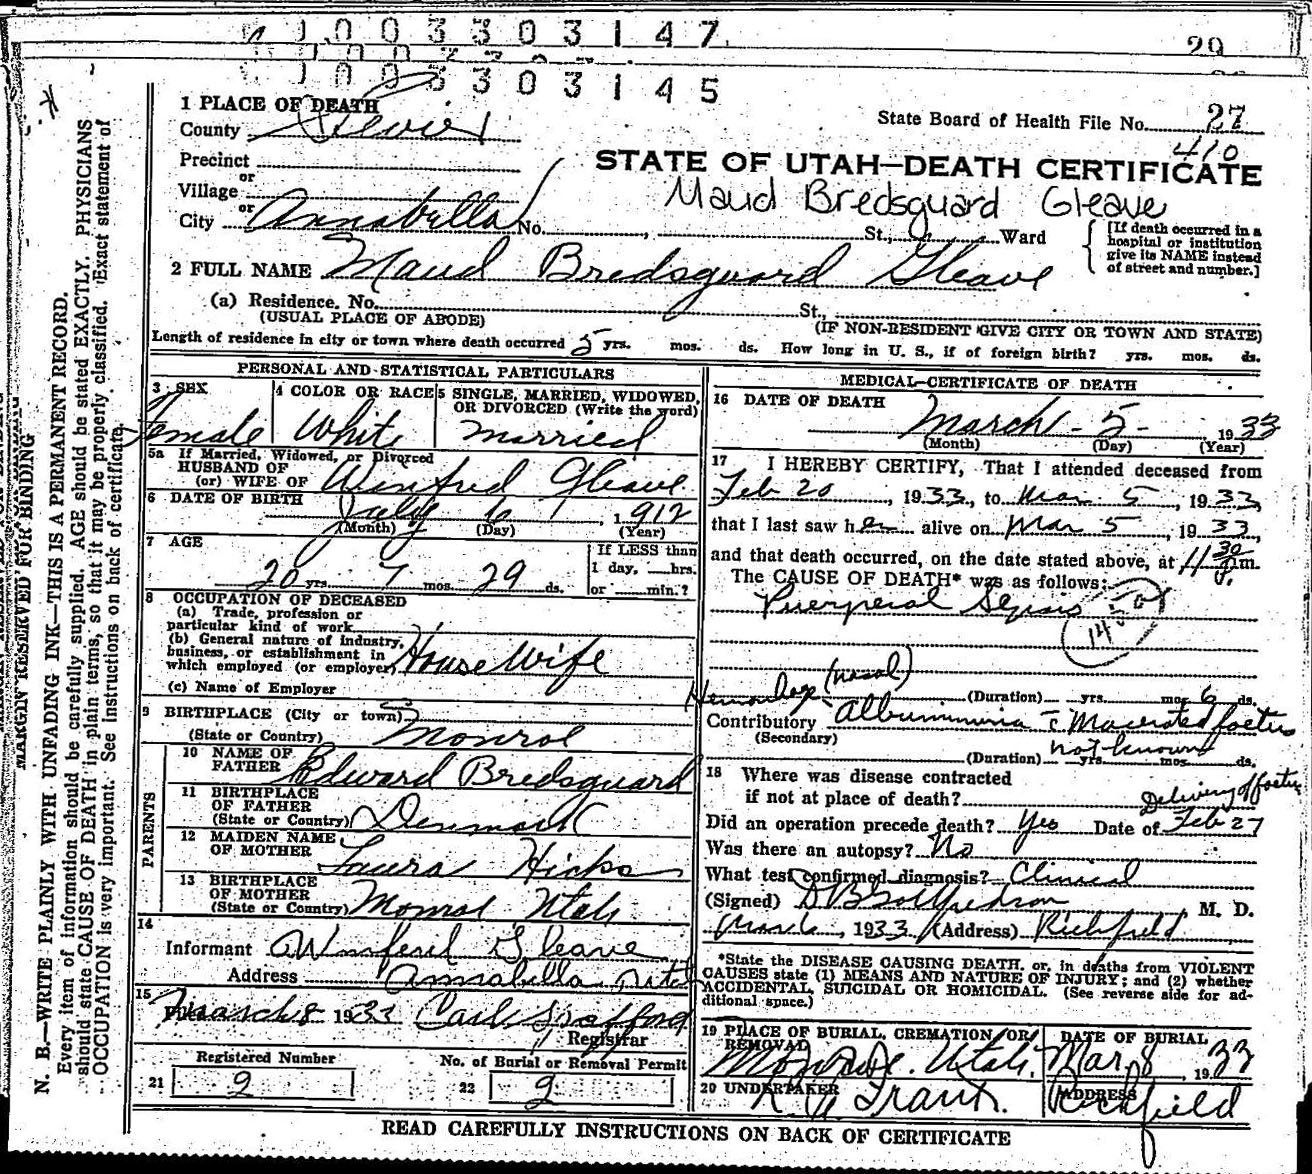 1003303147
29
1003303145
1 PLACE OF DEATH
County Sevier
State Board of Health File No. 27
410
Precinct
or
Village
or
City Annabella No. St., Ward
STATE OF UTAH—DEATH CERTIFICATE
Maud Bredsguard Gleave
[If death occurred in a hospital or institution give its NAME instead of street and number.]
2 FULL NAME Maud Bredsguard Gleave
(a) Residence. No. St.,
(USUAL PLACE OF ABODE) (IF NON-RESIDENT GIVE CITY OR TOWN AND STATE)
Length of residence in city or town where death occurred 5 yrs. mos. ds. How long in U. S., if of foreign birth? yrs. mos. ds.
PERSONAL AND STATISTICAL PARTICULARS
3 SEX
Female
4 COLOR OR RACE
White
5 SINGLE, MARRIED, WIDOWED,
OR DIVORCED (Write the word)
married
5a If Married, Widowed, or Divorced
HUSBAND OF
(or) WIFE OF Winfred Gleave
6 DATE OF BIRTH
July 6 1912
(Month) (Day) (Year)
7 AGE
20 yrs. 7 mos. 29 ds.
If LESS than
1 day, hrs.
or min.?
8 OCCUPATION OF DECEASED
(a) Trade, profession or
particular kind of work
(b) General nature of industry,
business, or establishment in
which employed (or employer) House Wife
(c) Name of Employer
9 BIRTHPLACE (City or town)
(State or Country) Monroe
PARENTS
10 NAME OF
FATHER Edward Bredsguard
11 BIRTHPLACE
OF FATHER
(State or Country) Denmark
12 MAIDEN NAME
OF MOTHER Laura Hicks
13 BIRTHPLACE
OF MOTHER
(State or Country) Monroe Utah
14
Informant Winferd Gleave
Address Annabella Utah
15
Filed March 8 1933 Carl Spafford
Registrar
Registered Number
21 2
No. of Burial or Removal Permit
22 2
MEDICAL CERTIFICATE OF DEATH
16 DATE OF DEATH
March - 5 - 1933
(Month) (Day) (Year)
17 I HEREBY CERTIFY, That I attended deceased from
Feb 20, 1933, to Mar 5, 1933,
that I last saw her alive on Mar 5, 1933,
and that death occurred, on the date stated above, at 11 30 p.m.
The CAUSE OF DEATH* was as follows:
Puerperal Sepsis
Hemorhage (nasal)
(Duration) yrs. mos. 6 ds.
Contributory Albuminuria c̄ Macerated foetus
(Secondary)
not known
(Duration) yrs. mos. ds.
18 Where was disease contracted
if not at place of death?
Delivery of foetus
Did an operation precede death? Yes Date of Feb 27
Was there an autopsy? No
What test confirmed diagnosis? Clinical
(Signed) M. D.
Mar 6, 1933 (Address) Richfield
*State the DISEASE CAUSING DEATH, or, in deaths from VIOLENT
CAUSES state (1) MEANS AND NATURE OF INJURY; and (2) whether
ACCIDENTAL, SUICIDAL OR HOMICIDAL. (See reverse side for ad-
ditional space.)
19 PLACE OF BURIAL, CREMATION OR
REMOVAL
Monroe. Utah.
DATE OF BURIAL
Mar 8, 1933
20 UNDERTAKER
ADDRESS
Richfield
READ CAREFULLY INSTRUCTIONS ON BACK OF CERTIFICATE
MARGIN RESERVED FOR BINDING
N. B.—WRITE PLAINLY WITH UNFADING INK—THIS IS A PERMANENT RECORD.
Every item of information should be carefully supplied. AGE should be stated EXACTLY. PHYSICIANS
should state CAUSE OF DEATH in plain terms, so that it may be properly classified. Exact statement of
OCCUPATION is very important. See instructions on back of certificate.